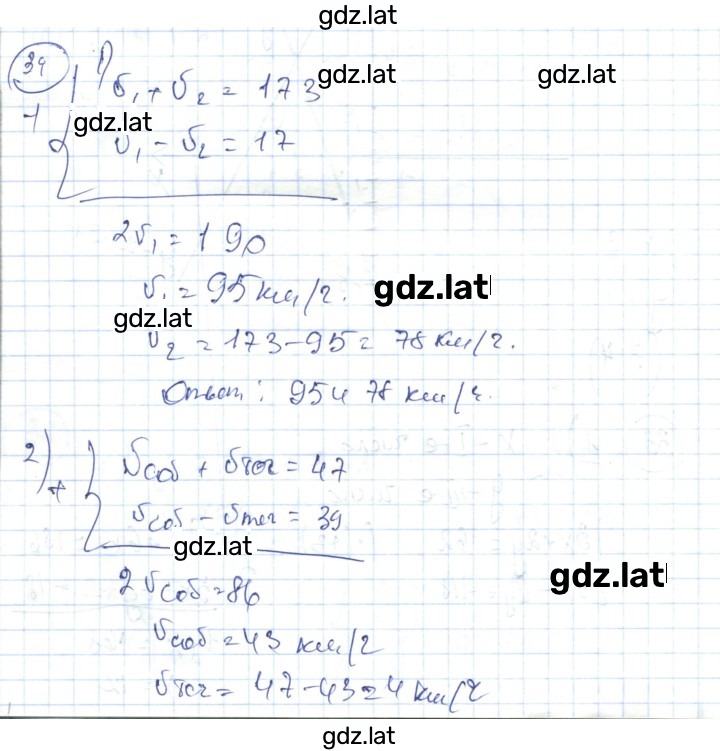 gdz.lat
39 1) v₁ + v₂ = 173 gdz.lat gdz.lat
gdz.lat v₁ - v₂ = 17
2v₁ = 190
v₁ = 95 км/ч. gdz.lat
gdz.lat
v₂ = 173 - 95 = 78 км/ч.
Ответ: 95 и 78 км/ч.
2) + vсоб + vтеч = 47
vсоб - vтеч = 39
gdz.lat
2vсоб = 86 gdz.lat
vсоб = 43 км/ч
vтеч = 47 - 43 = 4 км/ч
gdz.lat